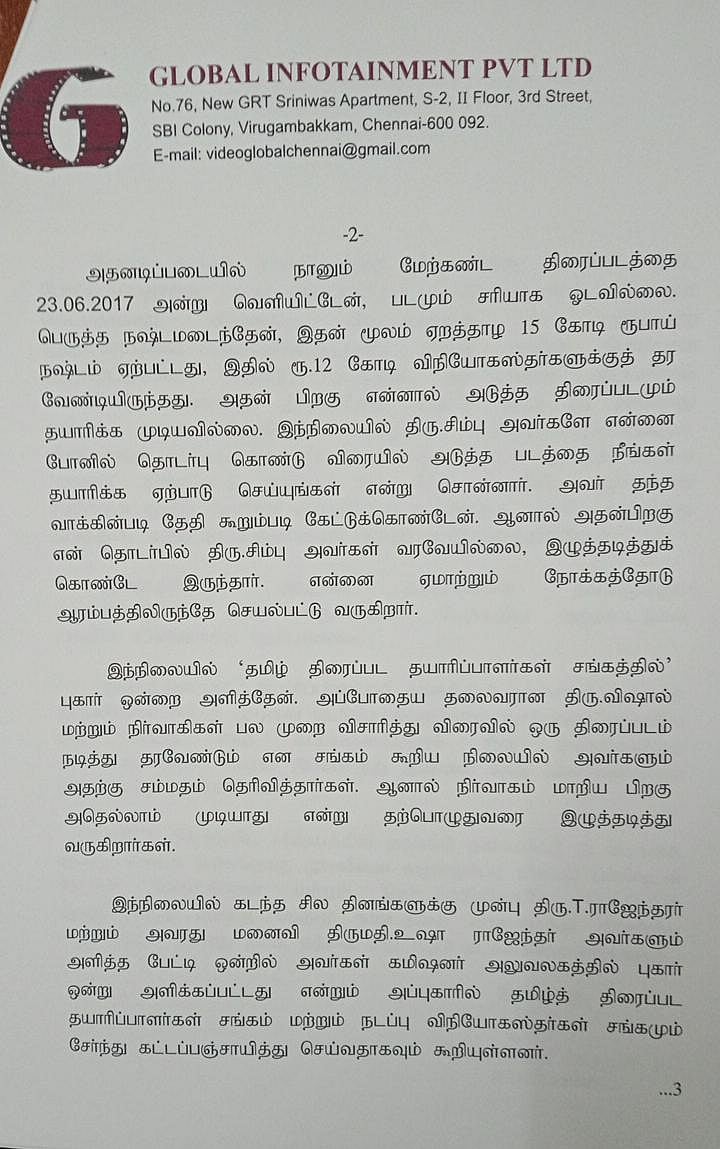 GLOBAL INFOTAINMENT PVT LTD
No.76, New GRT Sriniwas Apartment, S-2, II Floor, 3rd Street,
SBI Colony, Virugambakkam, Chennai-600 092.
E-mail: videoglobalchennai@gmail.com
-2-
அதனடிப்படையில் நானும் மேற்கண்ட திரைப்படத்தை
23.06.2017 அன்று வெளியிட்டேன், படமும் சரியாக ஓடவில்லை.
பெருத்த நஷ்டமடைந்தேன், இதன் மூலம் ஏறத்தாழ 15 கோடி ரூபாய்
நஷ்டம் ஏற்பட்டது, இதில் ரூ.12 கோடி விநியோகஸ்தர்களுக்குத் தர
வேண்டியிருந்தது. அதன் பிறகு என்னால் அடுத்த திரைப்படமும்
தயாரிக்க முடியவில்லை. இந்நிலையில் திரு.சிம்பு அவர்களே என்னை
போனில் தொடர்பு கொண்டு விரையில் அடுத்த படத்தை நீங்கள்
தயாரிக்க ஏற்பாடு செய்யுங்கள் என்று சொன்னார். அவர் தந்த
வாக்கின்படி தேதி கூறும்படி கேட்டுக்கொண்டேன். ஆனால் அதன்பிறகு
என் தொடர்பில் திரு.சிம்பு அவர்கள் வரவேயில்லை, இழுத்தடித்துக்
கொண்டே இருந்தார். என்னை ஏமாற்றும் நோக்கத்தோடு
ஆரம்பத்திலிருந்தே செயல்பட்டு வருகிறார்.
இந்நிலையில் ‘தமிழ் திரைப்பட தயாரிப்பாளர்கள் சங்கத்தில்’
புகார் ஒன்றை அளித்தேன். அப்போதைய தலைவரான திரு.விஷால்
மற்றும் நிர்வாகிகள் பல முறை விசாரித்து விரைவில் ஒரு திரைப்படம்
நடித்து தரவேண்டும் என சங்கம் கூறிய நிலையில் அவர்களும்
அதற்கு சம்மதம் தெரிவித்தார்கள். ஆனால் நிர்வாகம் மாறிய பிறகு
அதெல்லாம் முடியாது என்று தற்பொழுதுவரை இழுத்தடித்து
வருகிறார்கள்.
இந்நிலையில் கடந்த சில தினங்களுக்கு முன்பு திரு.T.ராஜேந்தரர்
மற்றும் அவரது மனைவி திருமதி.உஷா ராஜேந்தர் அவர்களும்
அளித்த பேட்டி ஒன்றில் அவர்கள் கமிஷனர் அலுவலகத்தில் புகார்
ஒன்று அளிக்கப்பட்டது என்றும் அப்புகாரில் தமிழ்த் திரைப்பட
தயாரிப்பாளர்கள் சங்கம் மற்றும் நடப்பு விநியோகஸ்தர்கள் சங்கமும்
சேர்ந்து கட்டப்பஞ்சாயித்து செய்வதாகவும் கூறியுள்ளனர்.
...3